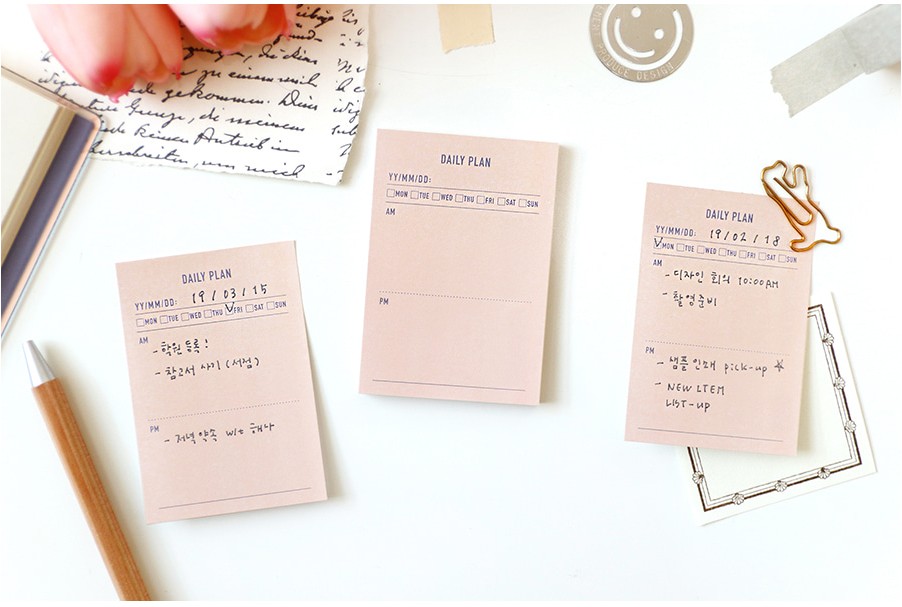 DAILY PLAN
YY/MM/DD: 19 / 03 / 15
MON TUE WED THU FRI SAT SUN
AM
- 학원 등록!
- 참고서 사기 (서점)
PM
- 저녁 약속 with 해나
DAILY PLAN
YY/MM/DD:
MON TUE WED THU FRI SAT SUN
AM
PM
DAILY PLAN
YY/MM/DD: 19 / 02 / 18
MON TUE WED THU FRI SAT SUN
AM
- 디자인 회의 10:00AM
- 촬영준비
PM
- 샘플 인쇄 pick-up
- NEW ITEM
LIST-UP
PRODUCE DESIGN
zu einem
gekommen. Dein
die meinem
keinen Anteil in
um mich